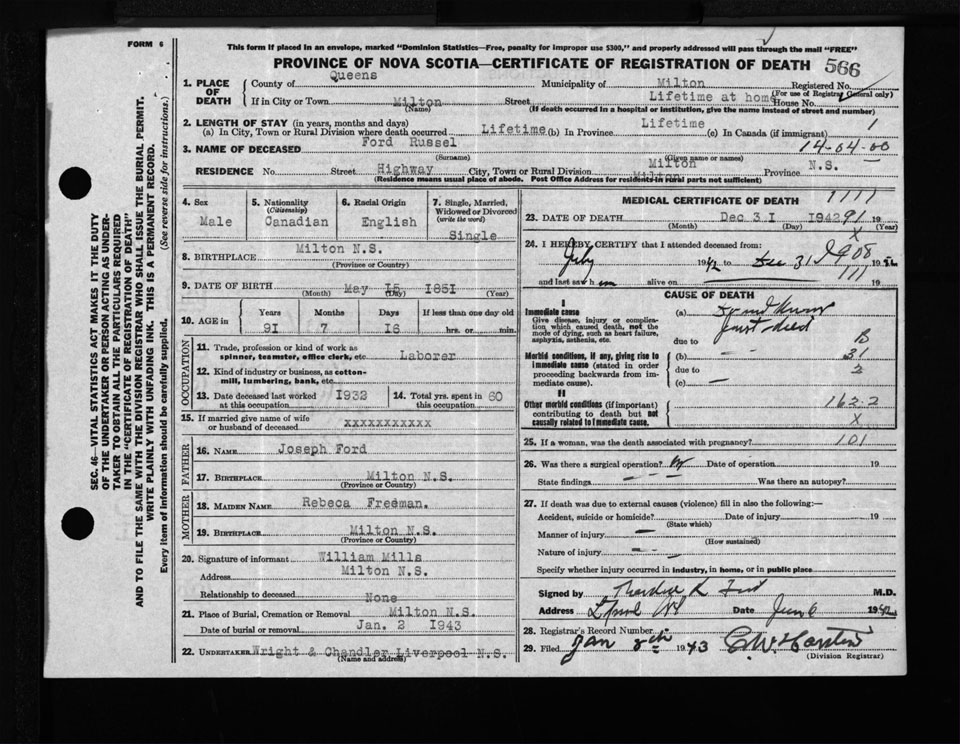 FORM 6
This form if placed in an envelope, marked "Dominion Statistics—Free, penalty for improper use $300," and properly addressed will pass through the mail "FREE"
PROVINCE OF NOVA SCOTIA—CERTIFICATE OF REGISTRATION OF DEATH 566
1. PLACE OF DEATH
County of Queens Municipality of Milton Registered No.
(For use of Registrar General only)
If in City or Town Milton Street Lifetime at home House No.
(Name) (If death occurred in a hospital or institution, give the name instead of street and number)
2. LENGTH OF STAY (in years, months and days)
(a) In City, Town or Rural Division where death occurred Lifetime (b) In Province Lifetime (c) In Canada (if immigrant) 1
3. NAME OF DECEASED Ford Russel 14-04-00
(Surname) (Given name or names)
RESIDENCE No. Street Highway City, Town or Rural Division Milton Milton Province N.S.
(Residence means usual place of abode. Post Office Address for residents in rural parts not sufficient)
4. Sex Male
5. Nationality (Citizenship) Canadian
6. Racial Origin English
7. Single, Married, Widowed or Divorced (write the word) Single
8. BIRTHPLACE Milton N.S.
(Province or Country)
9. DATE OF BIRTH May 15 1851
(Month) (Day) (Year)
10. AGE in Years Months Days If less than one day old
91 7 16 hrs. or min.
OCCUPATION
11. Trade, profession or kind of work as spinner, teamster, office clerk, etc. Laborer
12. Kind of industry or business, as cotton-mill, lumbering, bank, etc.
13. Date deceased last worked at this occupation 1932
14. Total yrs. spent in this occupation 60
15. If married give name of wife or husband of deceased xxxxxxxxxxx
FATHER
16. NAME Joseph Ford
17. BIRTHPLACE Milton N.S.
(Province or Country)
MOTHER
18. MAIDEN NAME Rebeca Freeman.
19. BIRTHPLACE Milton N.S.
(Province or Country)
20. Signature of informant William Mills
Address Milton N.S.
Relationship to deceased None
21. Place of Burial, Cremation or Removal Milton N.S.
Date of burial or removal Jan. 2 1943
22. UNDERTAKER Wright & Chandler Liverpool N.S.
(Name and address)
MEDICAL CERTIFICATE OF DEATH 1111
23. DATE OF DEATH Dec 31 1942 91 19
(Month) (Day) (Year)
X
24. I HEREBY CERTIFY that I attended deceased from:
July 1942 to Dec 31
and last saw h alive on 19
CAUSE OF DEATH
I
Immediate cause
Give disease, injury or complication which caused death, not the mode of dying, such as heart failure, asphyxia, asthenia, etc.
(a) just died
due to B
Morbid conditions, if any, giving rise to immediate cause (stated in order proceeding backwards from immediate cause).
(b) 31
due to 2
(c) —
II
Other morbid conditions (if important) contributing to death but not causally related to immediate cause.
162-2
X
25. If a woman, was the death associated with pregnancy? 101
26. Was there a surgical operation? Date of operation 19
State findings Was there an autopsy?
27. If death was due to external causes (violence) fill in also the following:—
Accident, suicide or homicide? Date of injury 19
(State which)
Manner of injury —
(How sustained)
Nature of injury
Specify whether injury occurred in industry, in home, or in public place
Signed by M.D.
Address Date 19
28. Registrar's Record Number
29. Filed Jan 8th 1943
(Division Registrar)
SEC. 46—VITAL STATISTICS ACT MAKES IT THE DUTY
OF THE UNDERTAKER OR PERSON ACTING AS UNDER-
TAKER TO OBTAIN ALL THE PARTICULARS REQUIRED
IN THE "CERTIFICATE OF REGISTRATION OF DEATH"
AND TO FILE THE SAME WITH THE DIVISION REGISTRAR WHO SHALL ISSUE THE BURIAL PERMIT.
WRITE PLAINLY WITH UNFADING INK. THIS IS A PERMANENT RECORD.
Every item of information should be carefully supplied. (See reverse side for instructions.)